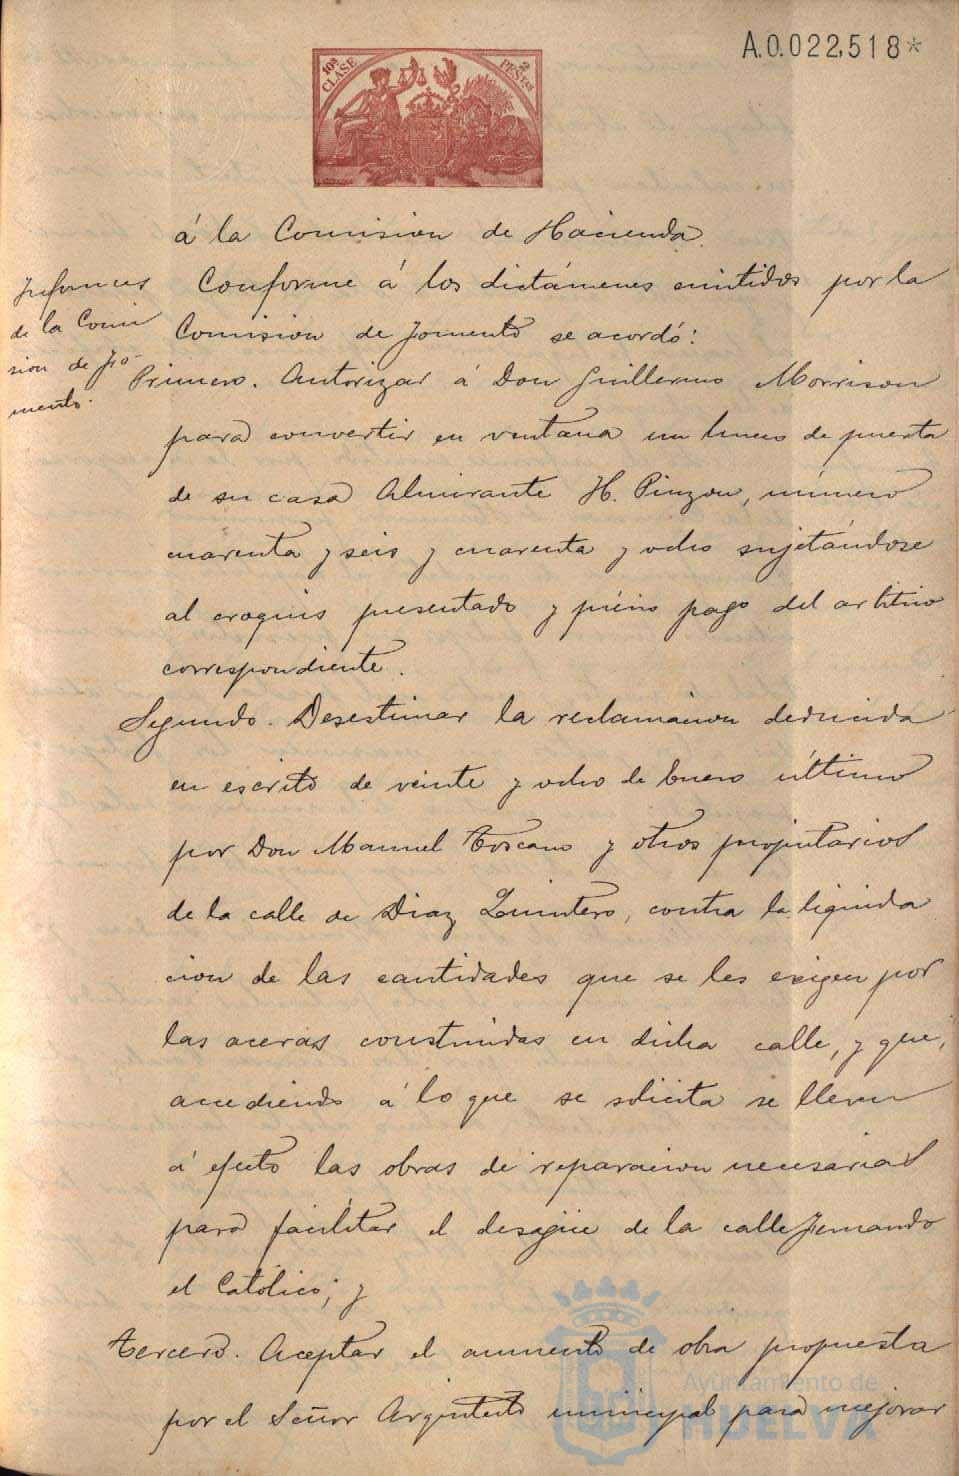 A.0.022,518*
10ª CLASE
2 PESTAS
á la Comision de Hacienda.
Informes
de la Comi
sion de Fo-
mento.
Conforme á los dictámenes emitidos por la
Comision de Fomento se acordó:
Primero. Autorizar á Don Guillermo Morrison
para convertir en ventana un hueco de puerta
de su casa Almirante H. Pinzon, número
cuarenta y seis y cuarenta y ocho sujetándose
al croquis presentado y prévio pago del arbitrio
correspondiente.
Segundo. Desestimar la reclamacion deducida
en escrito de veinte y ocho de Enero último
por Don Manuel Toscano y otros propietarios
de la calle de Diaz Quintero, contra la liquida
cion de las cantidades que se les exigen por
las aceras construidas en dicha calle, y que,
accediendo á lo que se solicita se lleven
á efecto las obras de reparacion necesarias
para facilitar el desagüe de la calle Fernando
el Católico; y
Tercero. Aceptar el aumento de obra propuesta
por el Señor Arquitecto municipal para mejorar
Ayuntamiento de
HUELVA